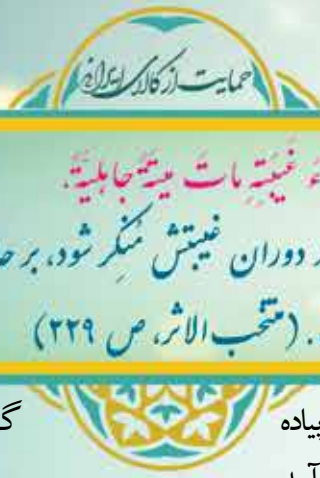 حمایت از کالای ایرانی
غَیبَتِهِ ماتَ میتَةً جاهِلیَّةً.
دوران غیبتش مُنکِر شود، بر
. (منتخب الاثر، ص ۲۲۹)
پیاده